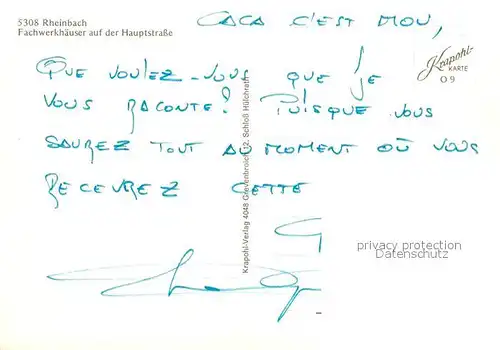 5308 Rheinbach
Fachwerkhäuser auf der Hauptstraße
CACA C'EST MOU,
QUE VOULEZ-VOUS QUE JE
VOUS RACONTE? PUISQUE VOUS
SAUREZ TOUT AU MOMENT OÙ VOUS
RECEVREZ CETTE
Krapohl-
KARTE
O 9
Krapohl-Verlag 4048 Grevenbroich 12, Schloß Hülchrath
privacy protection
Datenschutz